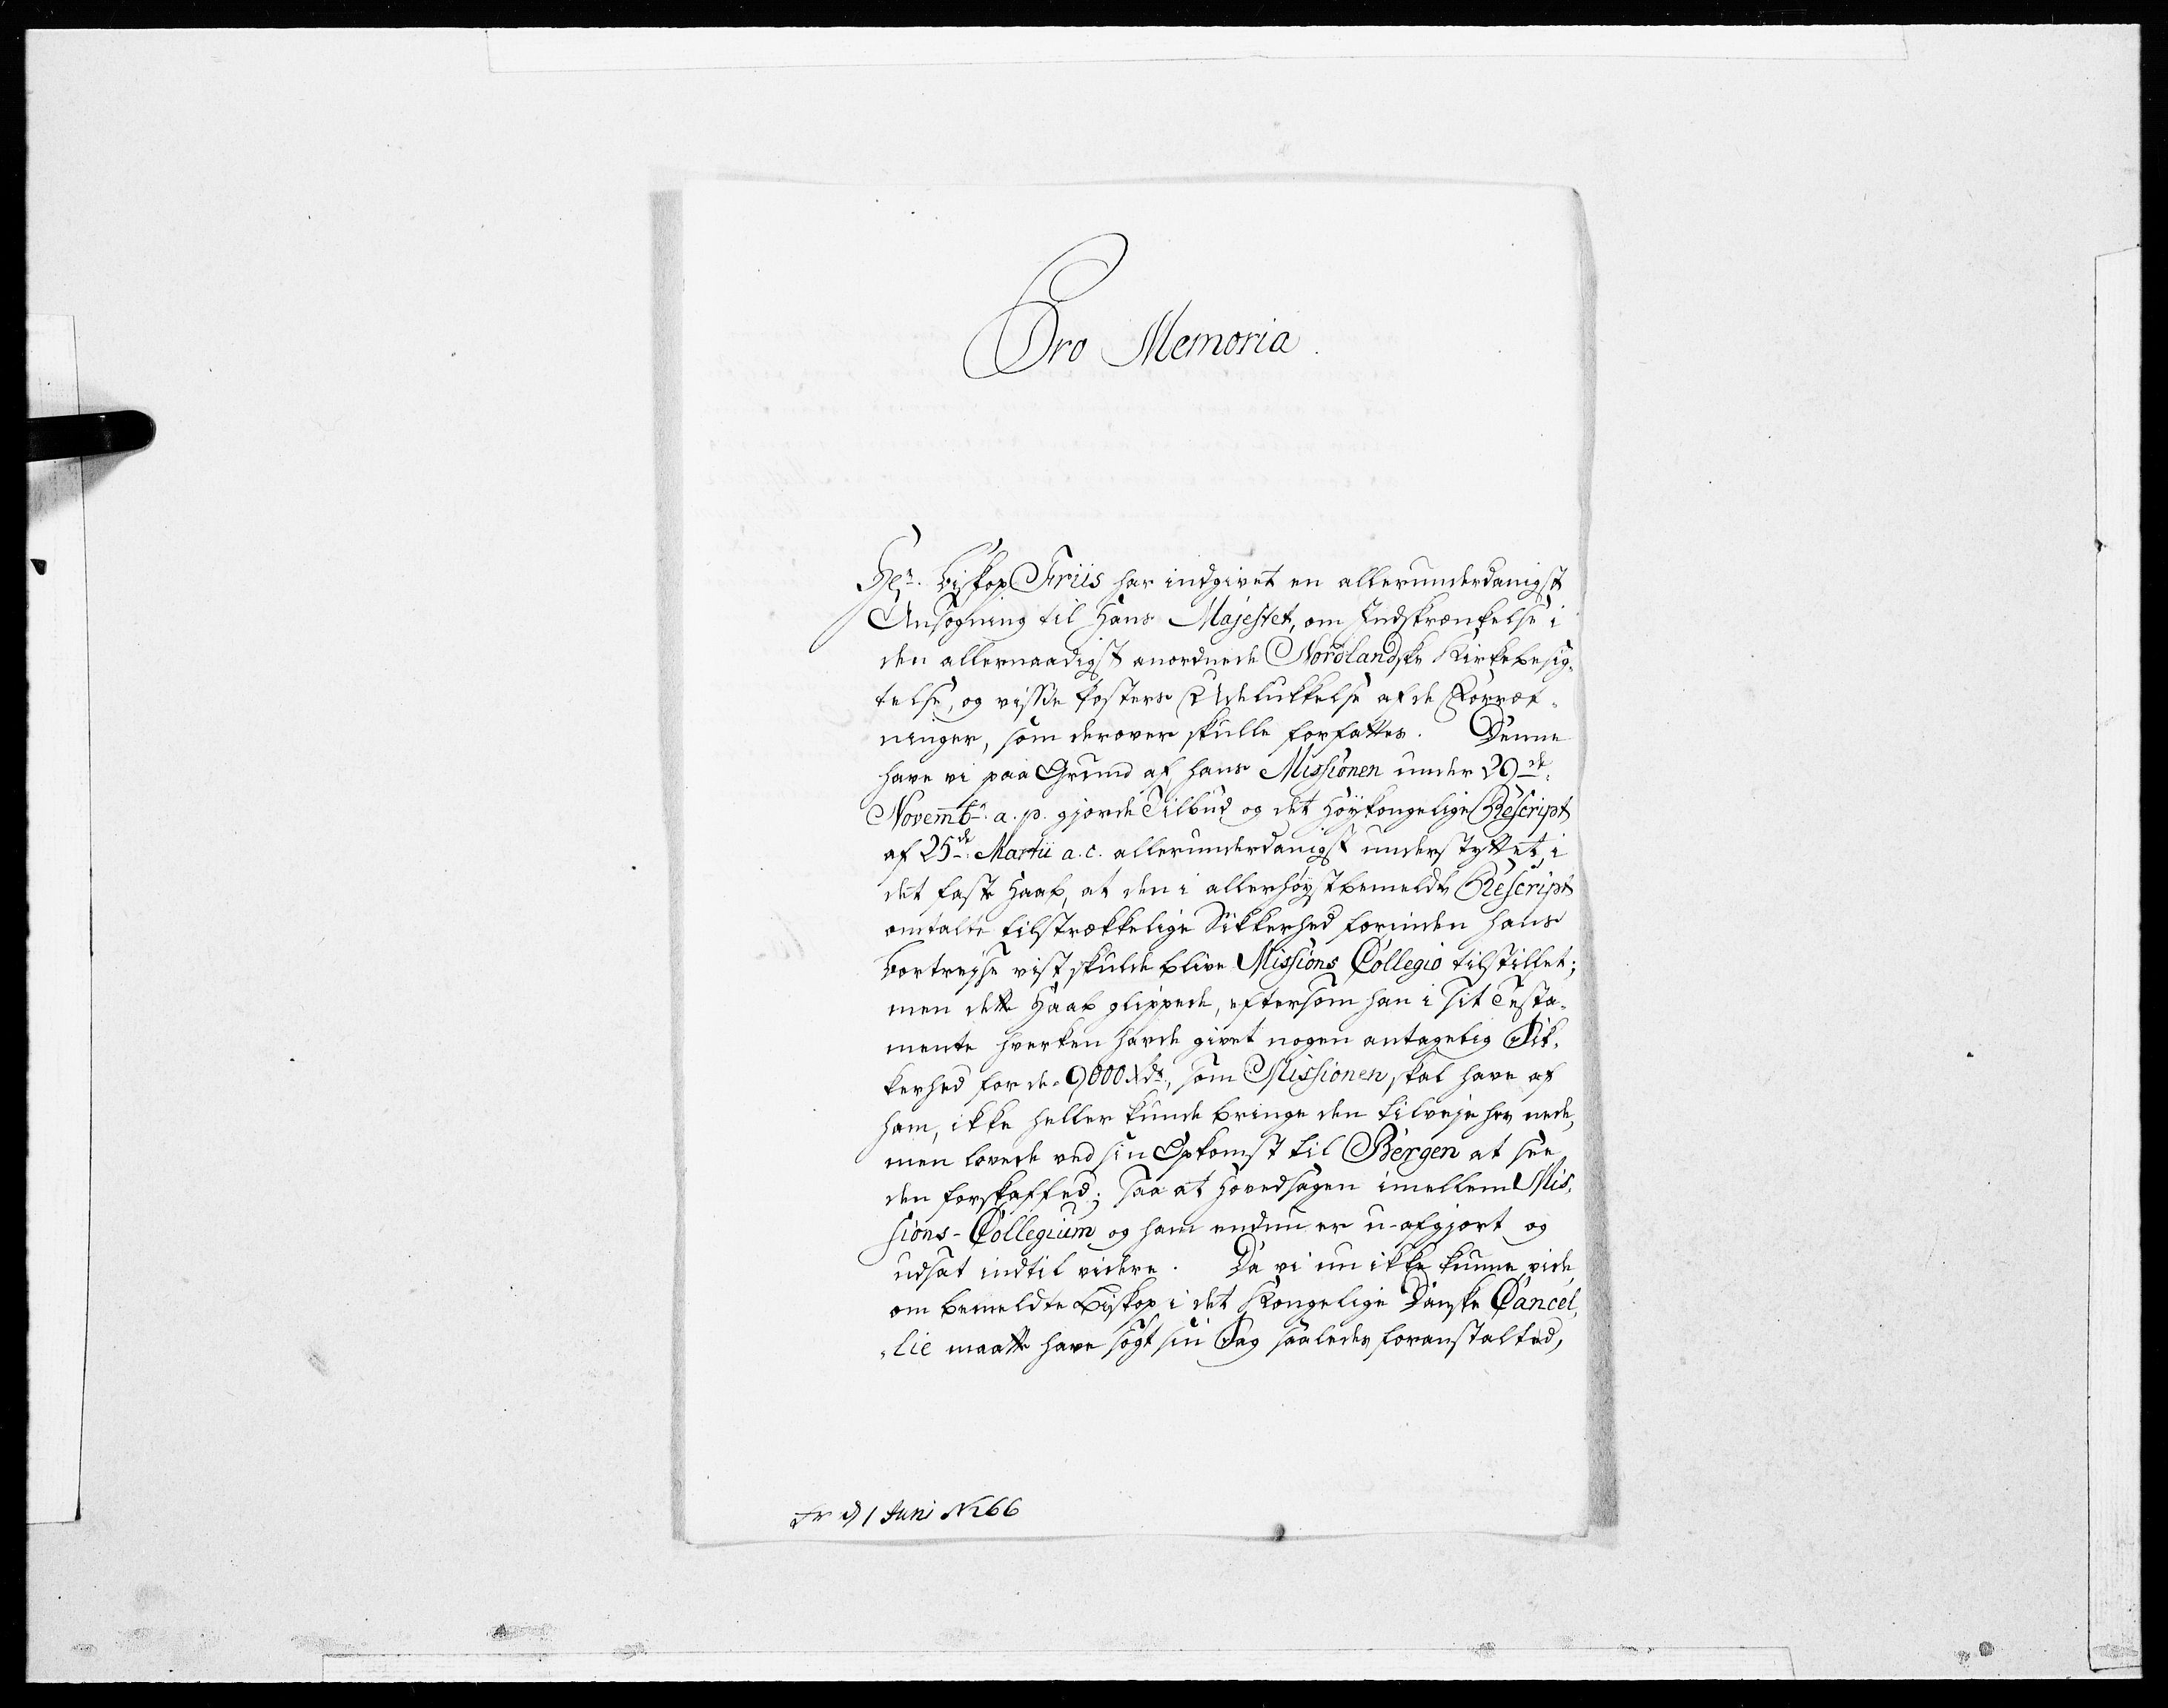 Pro Memoria.
Hr. Biskop Friis har indgivet en allerunderdanigst
Ansøgning til Hans Majestet, om Indskrænkelse i
den allernaadigst anordnede Nordlandske Kirkebesig-
telse, og visse Posters Udelukkelse af de Forræt-
ninger, som derover skulle forfattes. Denne
have vi paa Grund af hans Missionen under 29de
Novembr. a. p. gjorde Tilbud og det høykongelige Rescript
af 25de Martii a. c. allerunderdanigst understyttet, i
det faste Haab, at den i allerhøystbemeldte Rescript
omtalte tilstrækkelige Sikkerhed forinden hans
Bortrejse vist skulde blive Missions Collegio tilstillet;
men dette Haab glippede, eftersom han i sit Testa-
mente hverken havde givet nogen antagelig Sik-
kerhed for de 9000 Rdr., som Missionen skal have af
ham, ikke heller kunde bringe den tilveje her nede,
men lovede ved sin Opkomst til Bergen at see
den forskaffed; saa at Hovedsagen imellem Mis-
sions-Collegium og ham endnu er u-afgjort og
udsat indtil videre. Da vi nu ikke kunne vide,
om bemeldte Biskop i det Kongelige Danske Cancel-
lie maatte have søgt sin Sag saaledes foranstalted,
d 1 Juni No 266